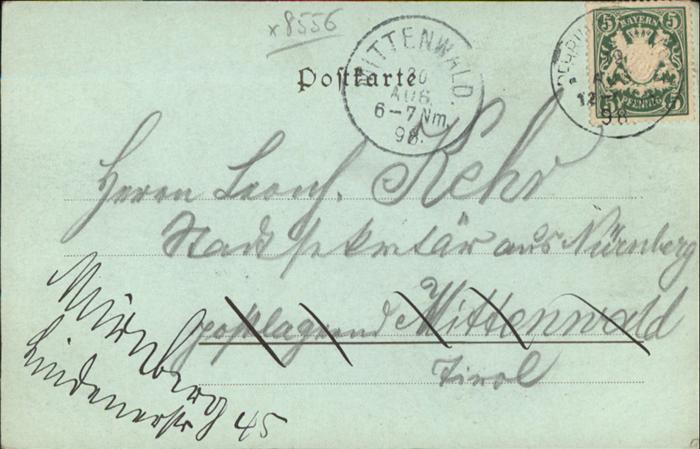 x8556
Postkarte
MITTENWALD.
20
AUG.
6-7Nm.
98.
12-
98
5 BAYERN 5
5 PFENNIG 5
Herrn Leonh. Kehr
Stadtsekretär aus Nürnberg
postlagernd Mittenwald
Tirol
Nürnberg
Lindenerstr 45